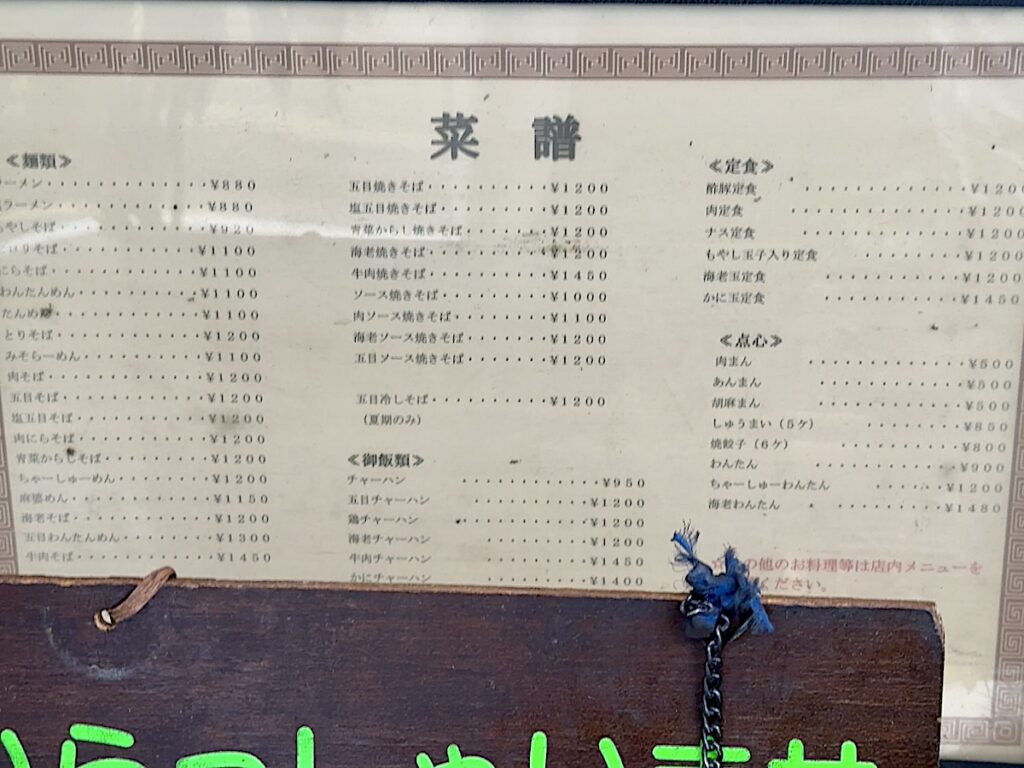 菜譜
≪麺類≫
ーメン・・・・・・・・・・・・・¥880
ラーメン・・・・・・・・・・・・¥880
もやしそば・・・・・・・・・・・¥920
そば・・・・・・・・・・・¥1100
にらそば・・・・・・・・・・・¥1100
わんたんめん・・・・・・・・・¥1100
たんめん・・・・・・・・・・・¥1100
とりそば・・・・・・・・・・・¥1200
みそらーめん・・・・・・・・・¥1100
肉そば・・・・・・・・・・・・¥1200
五目そば・・・・・・・・・・・¥1200
塩五目そば・・・・・・・・・・¥1200
肉にらそば・・・・・・・・・・¥1200
青菜からしそば・・・・・・・・¥1200
ちゃーしゅーめん・・・・・・・¥1200
麻婆めん・・・・・・・・・・・¥1150
海老そば・・・・・・・・・・・¥1200
五目わんたんめん・・・・・・・¥1300
牛肉そば・・・・・・・・・・・¥1450
五目焼きそば・・・・・・・・・・¥1200
塩五目焼きそば・・・・・・・・・¥1200
青菜からし焼きそば・・・・・・・¥1200
海老焼きそば・・・・・・・・・・¥1200
牛肉焼きそば・・・・・・・・・・¥1450
ソース焼きそば・・・・・・・・・¥1000
肉ソース焼きそば・・・・・・・・¥1100
海老ソース焼きそば・・・・・・・¥1200
五目ソース焼きそば・・・・・・・¥1200
五目冷しそば・・・・・・・・・・¥1200
(夏期のみ)
≪御飯類≫
チャーハン・・・・・・・・・・・・¥950
五目チャーハン・・・・・・・・・¥1200
鶏チャーハン・・・・・・・・・・¥1200
海老チャーハン・・・・・・・・・¥1200
牛肉チャーハン・・・・・・・・・¥1450
かにチャーハン・・・・・・・・・¥1400
≪定食≫
酢豚定食・・・・・・・・・・・・¥1200
肉定食・・・・・・・・・・・・・¥1200
ナス定食・・・・・・・・・・・・¥1200
もやし玉子入り定食・・・・・・・¥1200
海老玉定食・・・・・・・・・・・¥1200
かに玉定食・・・・・・・・・・・¥1450
≪点心≫
肉まん・・・・・・・・・・・・・¥500
あんまん・・・・・・・・・・・・¥500
胡麻まん・・・・・・・・・・・・¥500
しゅうまい(5ケ)・・・・・・・・¥850
焼餃子(6ケ)・・・・・・・・・・¥800
わんたん・・・・・・・・・・・・¥900
ちゃーしゅーわんたん・・・・・・¥1200
海老わんたん・・・・・・・・・・¥1480
の他のお料理等は店内メニューを
ください。